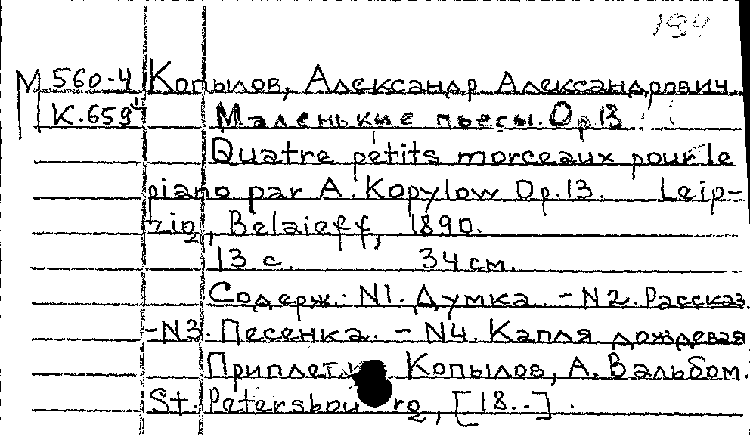 194
М 560-4 Копылов, Александр Александрович.
К.659 Маленькие пьесы. Op.13
Quatre petits morceaux pour le
piano par A. Kopylow Op.13. Leip-
zig, Belaieff, 1890.
13 с. 34 см.
Содерж: N1. Думка. - N2. Рассказ
-N3. Песенка. - N4. Капля дождевая
Приплет. к Копылов, А. Вальбом.
St. Petersbourg, [18..].